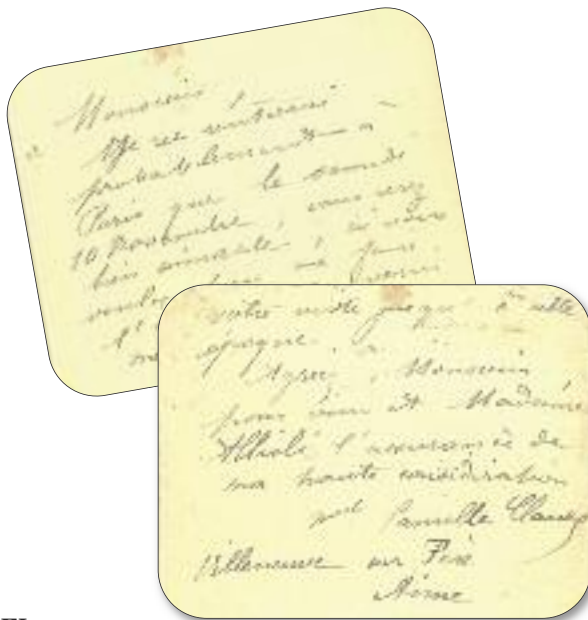 Monsieur
Je ne rentrerai
probablement à
Paris que le samedi
10 Novembre, vous serez
bien aimable, si vous
voulez bien me faire
l'
votre visite jusqu'à cette
époque.
Agréez, Monsieur
pour vous et Madame
l'assurance de
ma haute considération
Mel Camille Claudel
Villeneuve sur Fère
Aisne